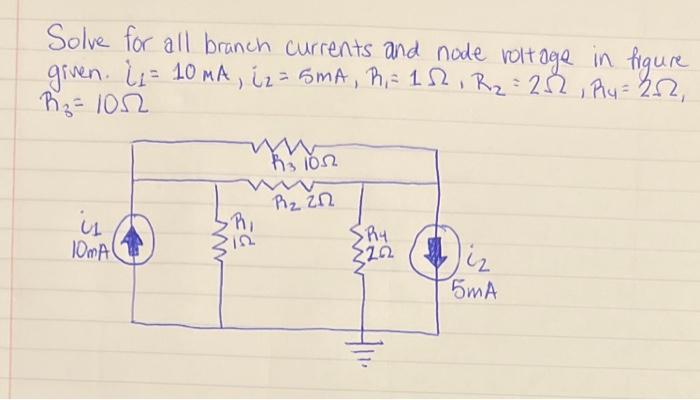 Solve for all branch currents and node voltage in figure
given. i1 = 10 mA, i2 = 5mA, R1 = 1Ω, R2 = 2Ω, R4 = 2Ω,
R3 = 10Ω
R3 10Ω
R2 2Ω
i1
10mA
R1
1Ω
R4
2Ω
i2
5mA